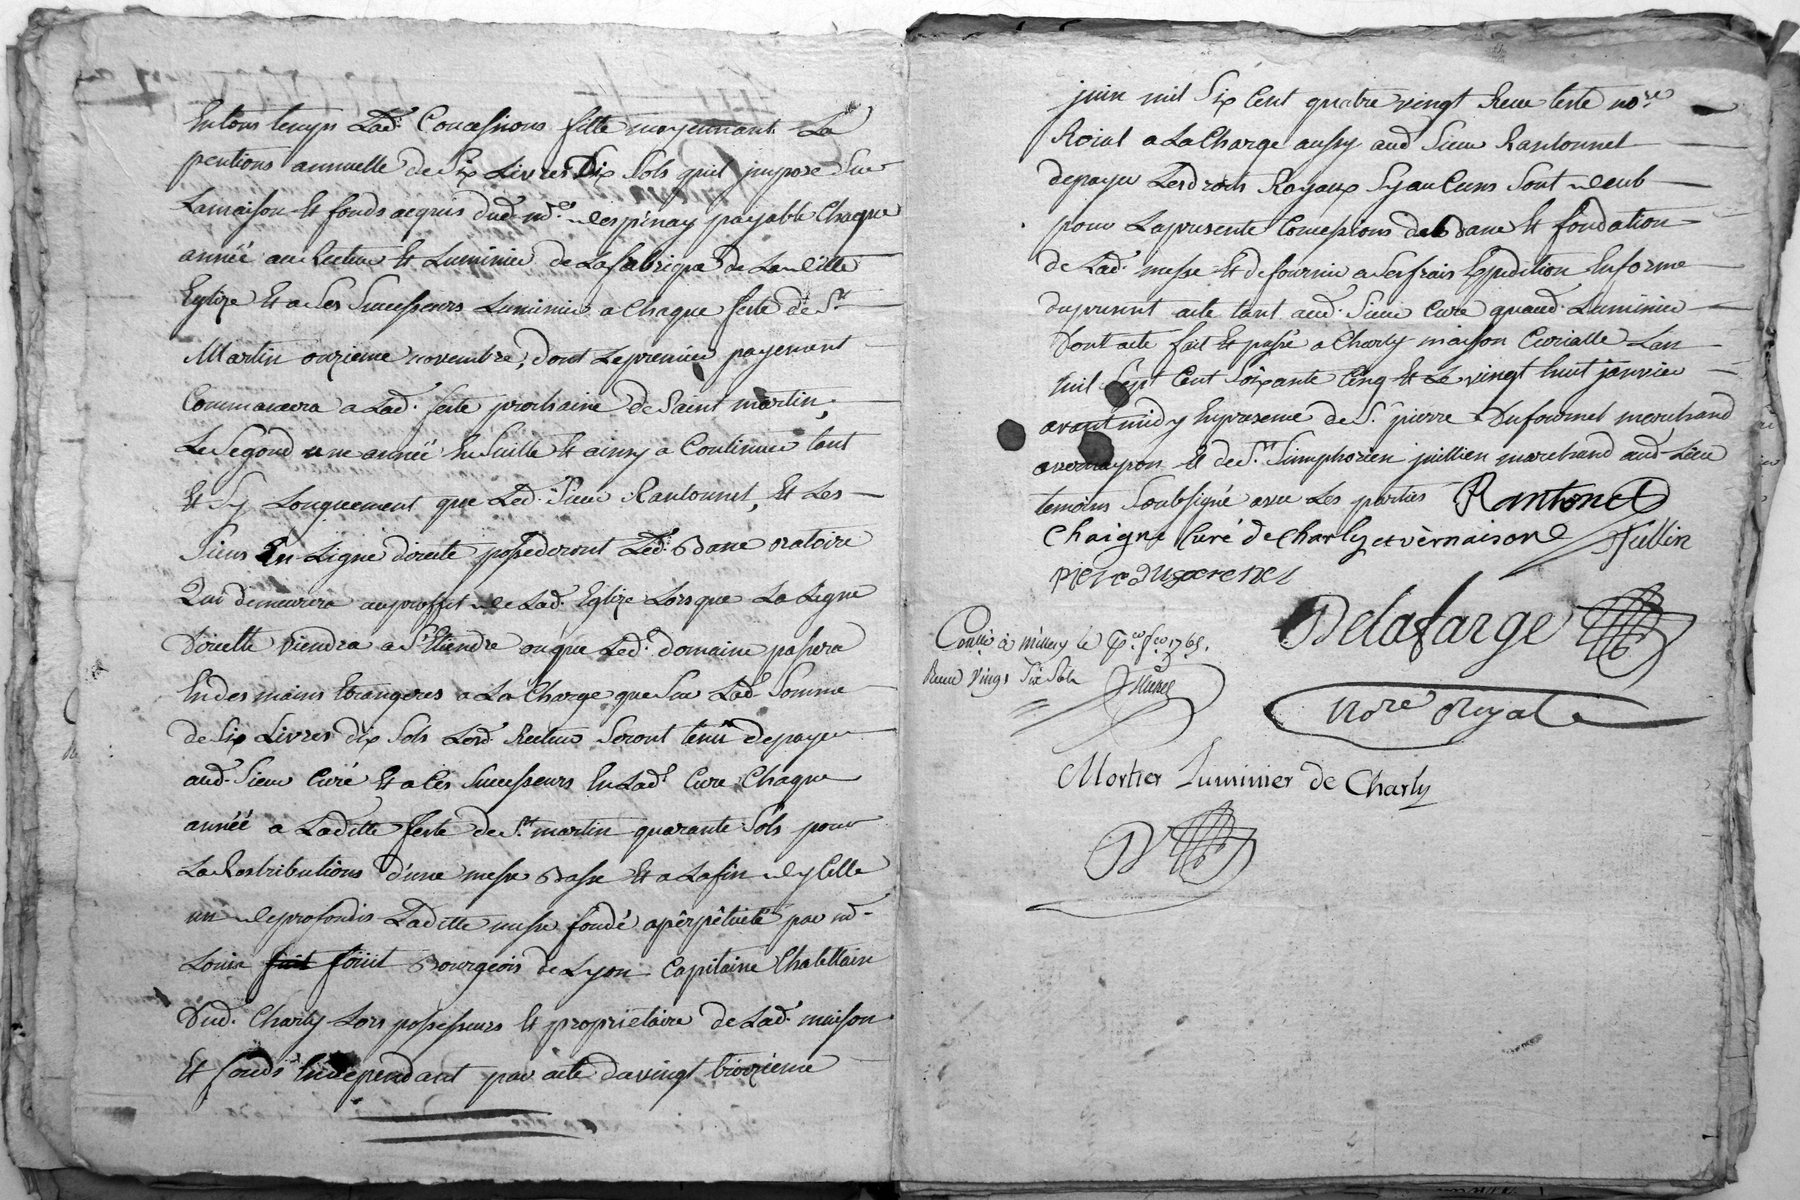 En tous temps Lad.e Concessions fitte moyennant La
pentions annuelle de Six Livres Dix Sols quil jmpose Sur
La maison Et fonds acquis dud. m.e despinay payable Chaque
année au Recteur Et Luminier de La fabrique de Laditte
Eglize Et a Ses Successeurs Luminier a Chaque feste de St
Martin onzieme novembre, dont Le premier payement
Commancera a Lad. feste prochaine de Saint martin,
Le Segond une année En Suitte Et ainsy a Continuer tant
Et Sy Longuement que Led. Sieur Rantonnet, Et Les
Siens En Ligne directe possederont Led. Banc oratoire
Qui demeurera au proffit de Lad. Eglize Lors que La Ligne
Directte viendra a S'Etiendre ou que Led. domaine passera
En des mains Etrangeres a La Charge que Sur Lad. Somme
de Six Livres dix Sols Lesd. Recteur Seront tenu de payer
aud. Sieur Curé Et a Ces Successeurs En Lad. Cure Chaque
année a Laditte feste de St. martin quarante Sols pour
La Restributions d'une messe Basse Et a La fin dycelle
un deprofondis Laditte messe fondé a pêrpêtuité par m.
Louis foüit Bourgeois de Lyon Capitaine Chatellain
Dud. Charly Lors possesseurs Et proprietaire de Lad. maison
Et fonds Endependant par acte du vingt troizieme
juin mil Six Cent quatre vingt Receu no.re
Roial a La Charge aussy aud. Sieur Rantonnet
de payer Les droits Royaux Sy aucuns Sont deub
pour La presente Concessions de Banc Et fondation
de Lad. messe Et de fournir a Ses frais Expedition En forme
du present acte tant aud. Sieur Curé quaud. Luminier
Dont acte fait Et passé a Charly maison Curialle Lan
mil Sept Cent Soixante Cinq Et Le vingt huit janvier
avant midy En presence de Sr. pierre Dufournel marchand
a vernayzon Et de Sr. Simphorien jullien marchand aud. Lieu
temoins Soubsigné avec Les parties Rantonet
Chaigne Curé de Charly et vèrnaison Jullin
pierre
Delafarge
Conllé à millery le 1765.
Receu vingt Six Sols
Nore Royal
Mortier Luminier de Charly